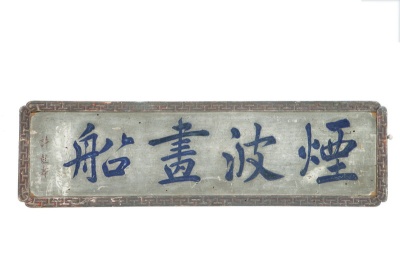 煙波畫船